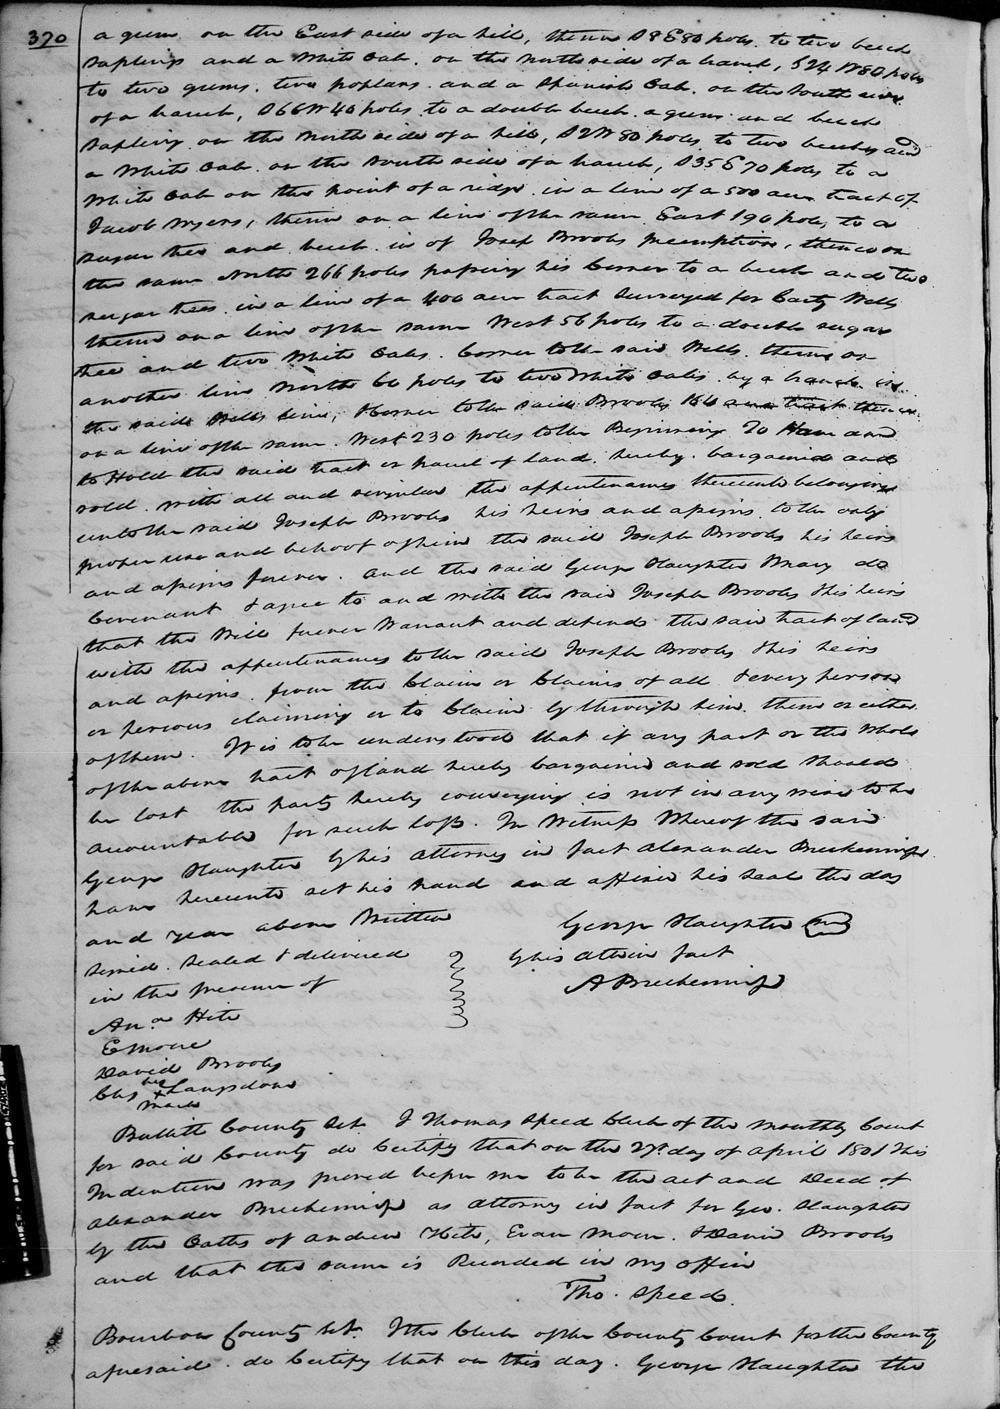 370
a gum on the East side of a hill, thence S 8 E 80 poles to two beech
saplings and a White Oak on the North side of a branch, S 24 W 80 poles
to two gums, two poplars and a Spanish Oak on the South side
of a branch, S 66 W 40 poles to a double beech a gum and beech
sapling on the North side of a hill, S 2 W 80 poles to two beeches and
a White Oak on the South side of a branch, S 35 E 70 poles to a
White Oak on the point of a ridge in a line of a 500 acre tract of
Jacob Myers, thence on a line of the same East 190 poles to a
sugar tree and beech in of Josep Brooks preemption, thence on
the same North 266 poles passing his Corner to a beech and two
sugar trees in a line of a 400 acre tract Surveyed for Carty Wells
thence on a line of the same West 56 poles to a double sugar
tree and two White Oaks Corner to the said Wells thence on
another line North 60 poles to two White Oaks by a branch in
the said Wells line, Corner to the said Brooks 164 acre tract thence
on a line of the same West 230 poles to the Beginning To Have and
to Hold the said tract or parcel of land hereby bargained and
sold with all and singular the appurtenances thereunto belonging
unto the said Joseph Brooks his heirs and assigns to the only
proper use and behoof of him the said Joseph Brooks his heirs
and assigns forever. And the said George Slaughter Mary do
Covenant & agree to and with the said Joseph Brooks His heirs
that the Will forever Warrant and defend the said tract of land
with the appurtenances to the said Joseph Brooks His heirs
and assigns from the Claim or Claims of all & every person
or persons claiming or to Claim by through him them or either
of them. It is to be understood that if any part or the Whole
of the above tract of land hereby bargained and sold Should
be lost the party hereby conveying is not in any wise to be
accountable for such loss. In Witness Whereof the said
George Slaughter by his Attorney in fact Alexander Breckenridge
have hereunto set his hand and affixed his Seal the day
and year above Written
George Slaughter
Signed Sealed & delivered
by his Atto in fact
in the presence of
A Breckenridge
Anw Hite
E Moore
David Brooks
Chs his + mark Langsdon
Bullitt County Sct. I Thomas Speed Clerk of the Monthly Court
for said County do Certify that on the 27 day of April 1801 This
Indenture was proved before me to be the act and deed of
Alexander Breckenridge as attorney in fact for Geo. Slaughter
by the Oaths of Andrew Hite, Evan Moore & David Brooks
and that the same is Recorded in my office
Tho. Speed.
Bourbon County Sct. I the Clerk of the County Court for the County
aforesaid do Certify that on this day George Slaughter the